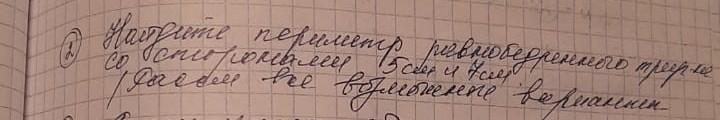 2 Найдите периметр равнобедренного треуг-ка
со сторонами 5см и 7см
(Рассм все возможные варианты